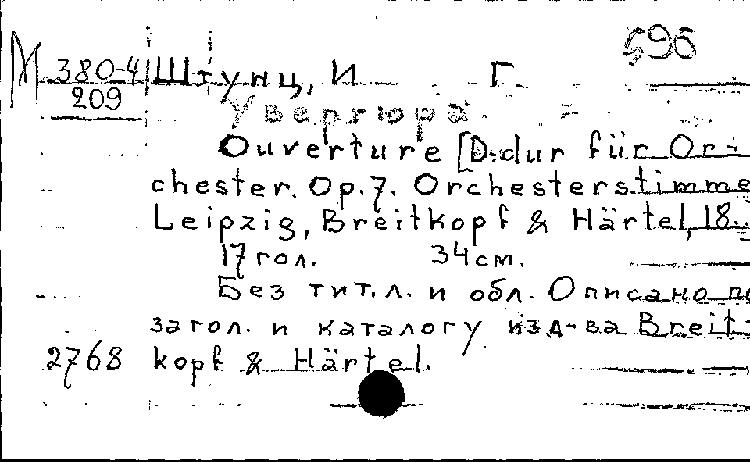 596
М 380-4 Штунц, И. Г.
209
Увертюра.
Ouverture [D-dur für Or-
chester. Op.7. Orchesterstimme
Leipzig, Breitkopf & Härtel, 18..
17 гол. 34 см.
Без тит. л. и обл. Описано по
загол. и каталогу изд-ва Breit-
2768 kopf & Härtel.